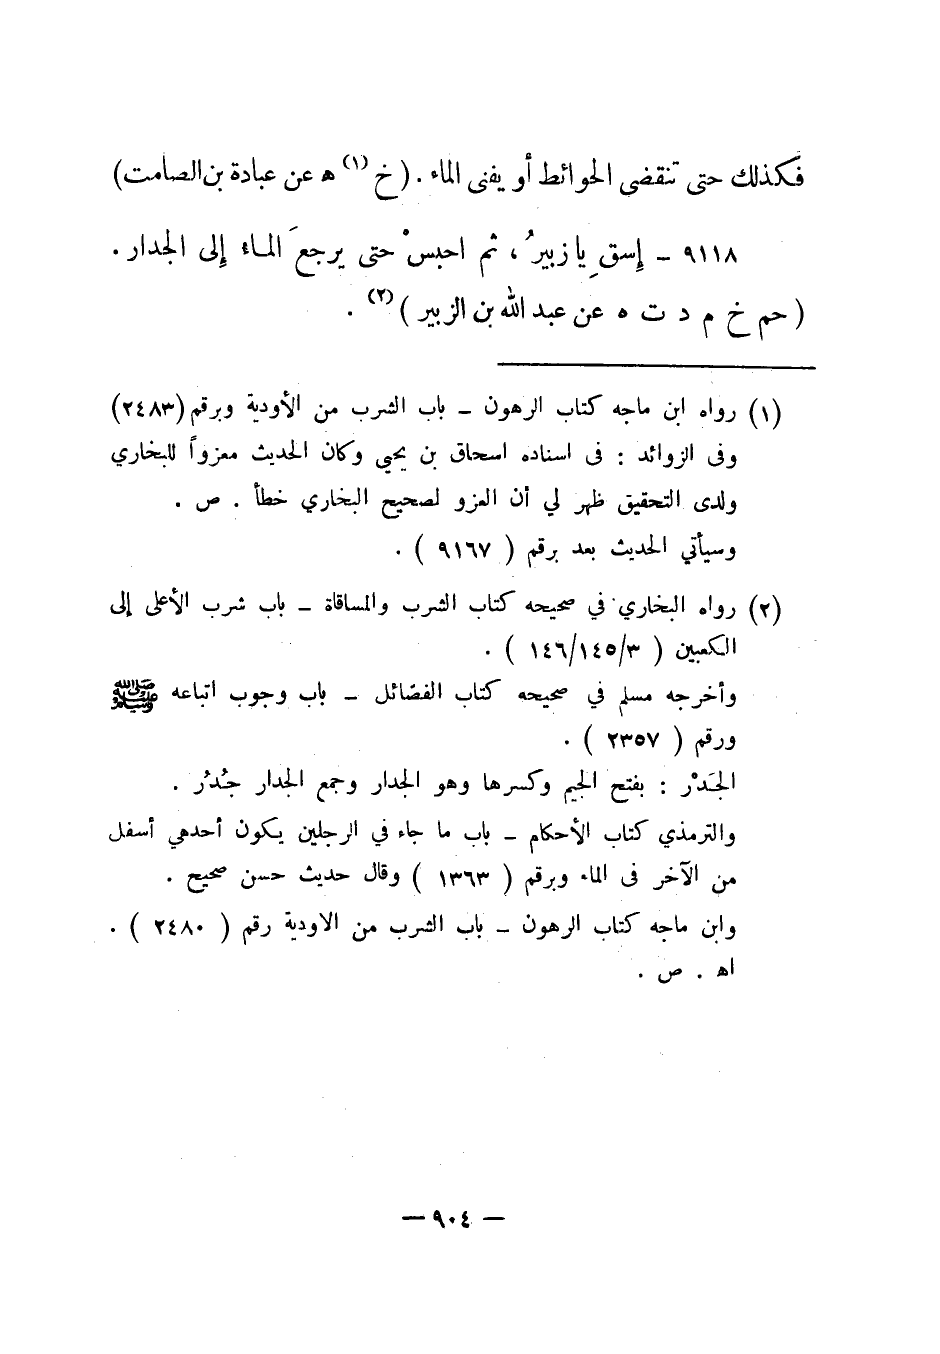 فكذلك حتى تنقضي الحوائط أو يفنى الماء . ( خ (١) ه عن عبادة بن الصامت )
٩١١٨ – إسقِ يا زبيرُ ، ثم احبسْ حتى يرجعَ الماء إلى الجدار .
( حم خ م د ت ه عن عبد الله بن الزبير ) (٢) .
(١) رواه ابن ماجه كتاب الرهون – باب الشرب من الأودية وبرقم (٢٤٨٣)
وفى الزوائد : فى اسناده اسحاق بن يحيى وكان الحديث معزواً للبخاري
ولدى التحقيق ظهر لي أن العزو لصحيح البخاري خطأ . ص .
وسيأتي الحديث بعد برقم ( ٩١٦٧ ) .
(٢) رواه البخاري في صحيحه كتاب الشرب والمساقاة – باب شرب الأعلى إلى
الكعبين ( ١٤٦/١٤٥/٣ ) .
وأخرجه مسلم في صحيحه كتاب الفضائل – باب وجوب اتباعه ﷺ
ورقم ( ٢٣٥٧ ) .
الجَدْر : بفتح الجيم وكسرها وهو الجدار وجمع الجدار جُدُر .
والترمذي كتاب الأحكام – باب ما جاء في الرجلين يكون أحدهي أسفل
من الآخر فى الماء وبرقم ( ١٣٦٣ ) وقال حديث حسن صحيح .
وابن ماجه كتاب الرهون – باب الشرب من الاودية رقم ( ٢٤٨٠ ) .
اه . ص .
— ٩٠٤ —